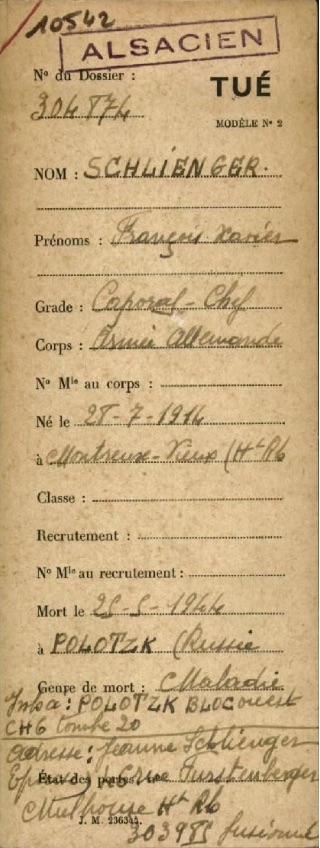 10542
ALSACIEN
N° du Dossier :
TUÉ
304 774
MODÈLE N° 2
NOM : SCHLIENGER.
Prénoms : François Xavier
Grade : Caporal-Chef
Corps : Armée Allemande
N° Mle au corps :
Né le 28-7-1914
à Montreux-Vieux (Ht Rh
Classe :
Recrutement :
N° Mle au recrutement :
Mort le 25-5-1944
à POLOTZK (Russie
Genre de mort : Maladie
Inha : POLOTZK BLOC ouest
CH6 tombe 20
adresse : Jeanne Schlienger
Epouse, Rue Furstenberger
État des pertes :
Mulhouse Ht Rh
J. M. 236345.
30397 fusionné